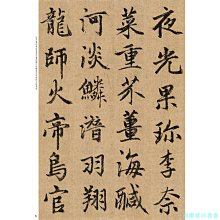 夜光果珎李柰
菜重芥薑海醎
河淡鱗潛羽翔
龍師火帝鳥官